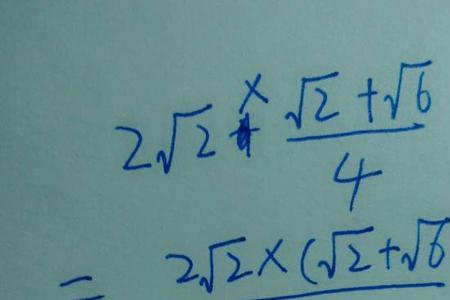 2√2 × (√2 + √6)/4
= 2√2 × (√2 + √6